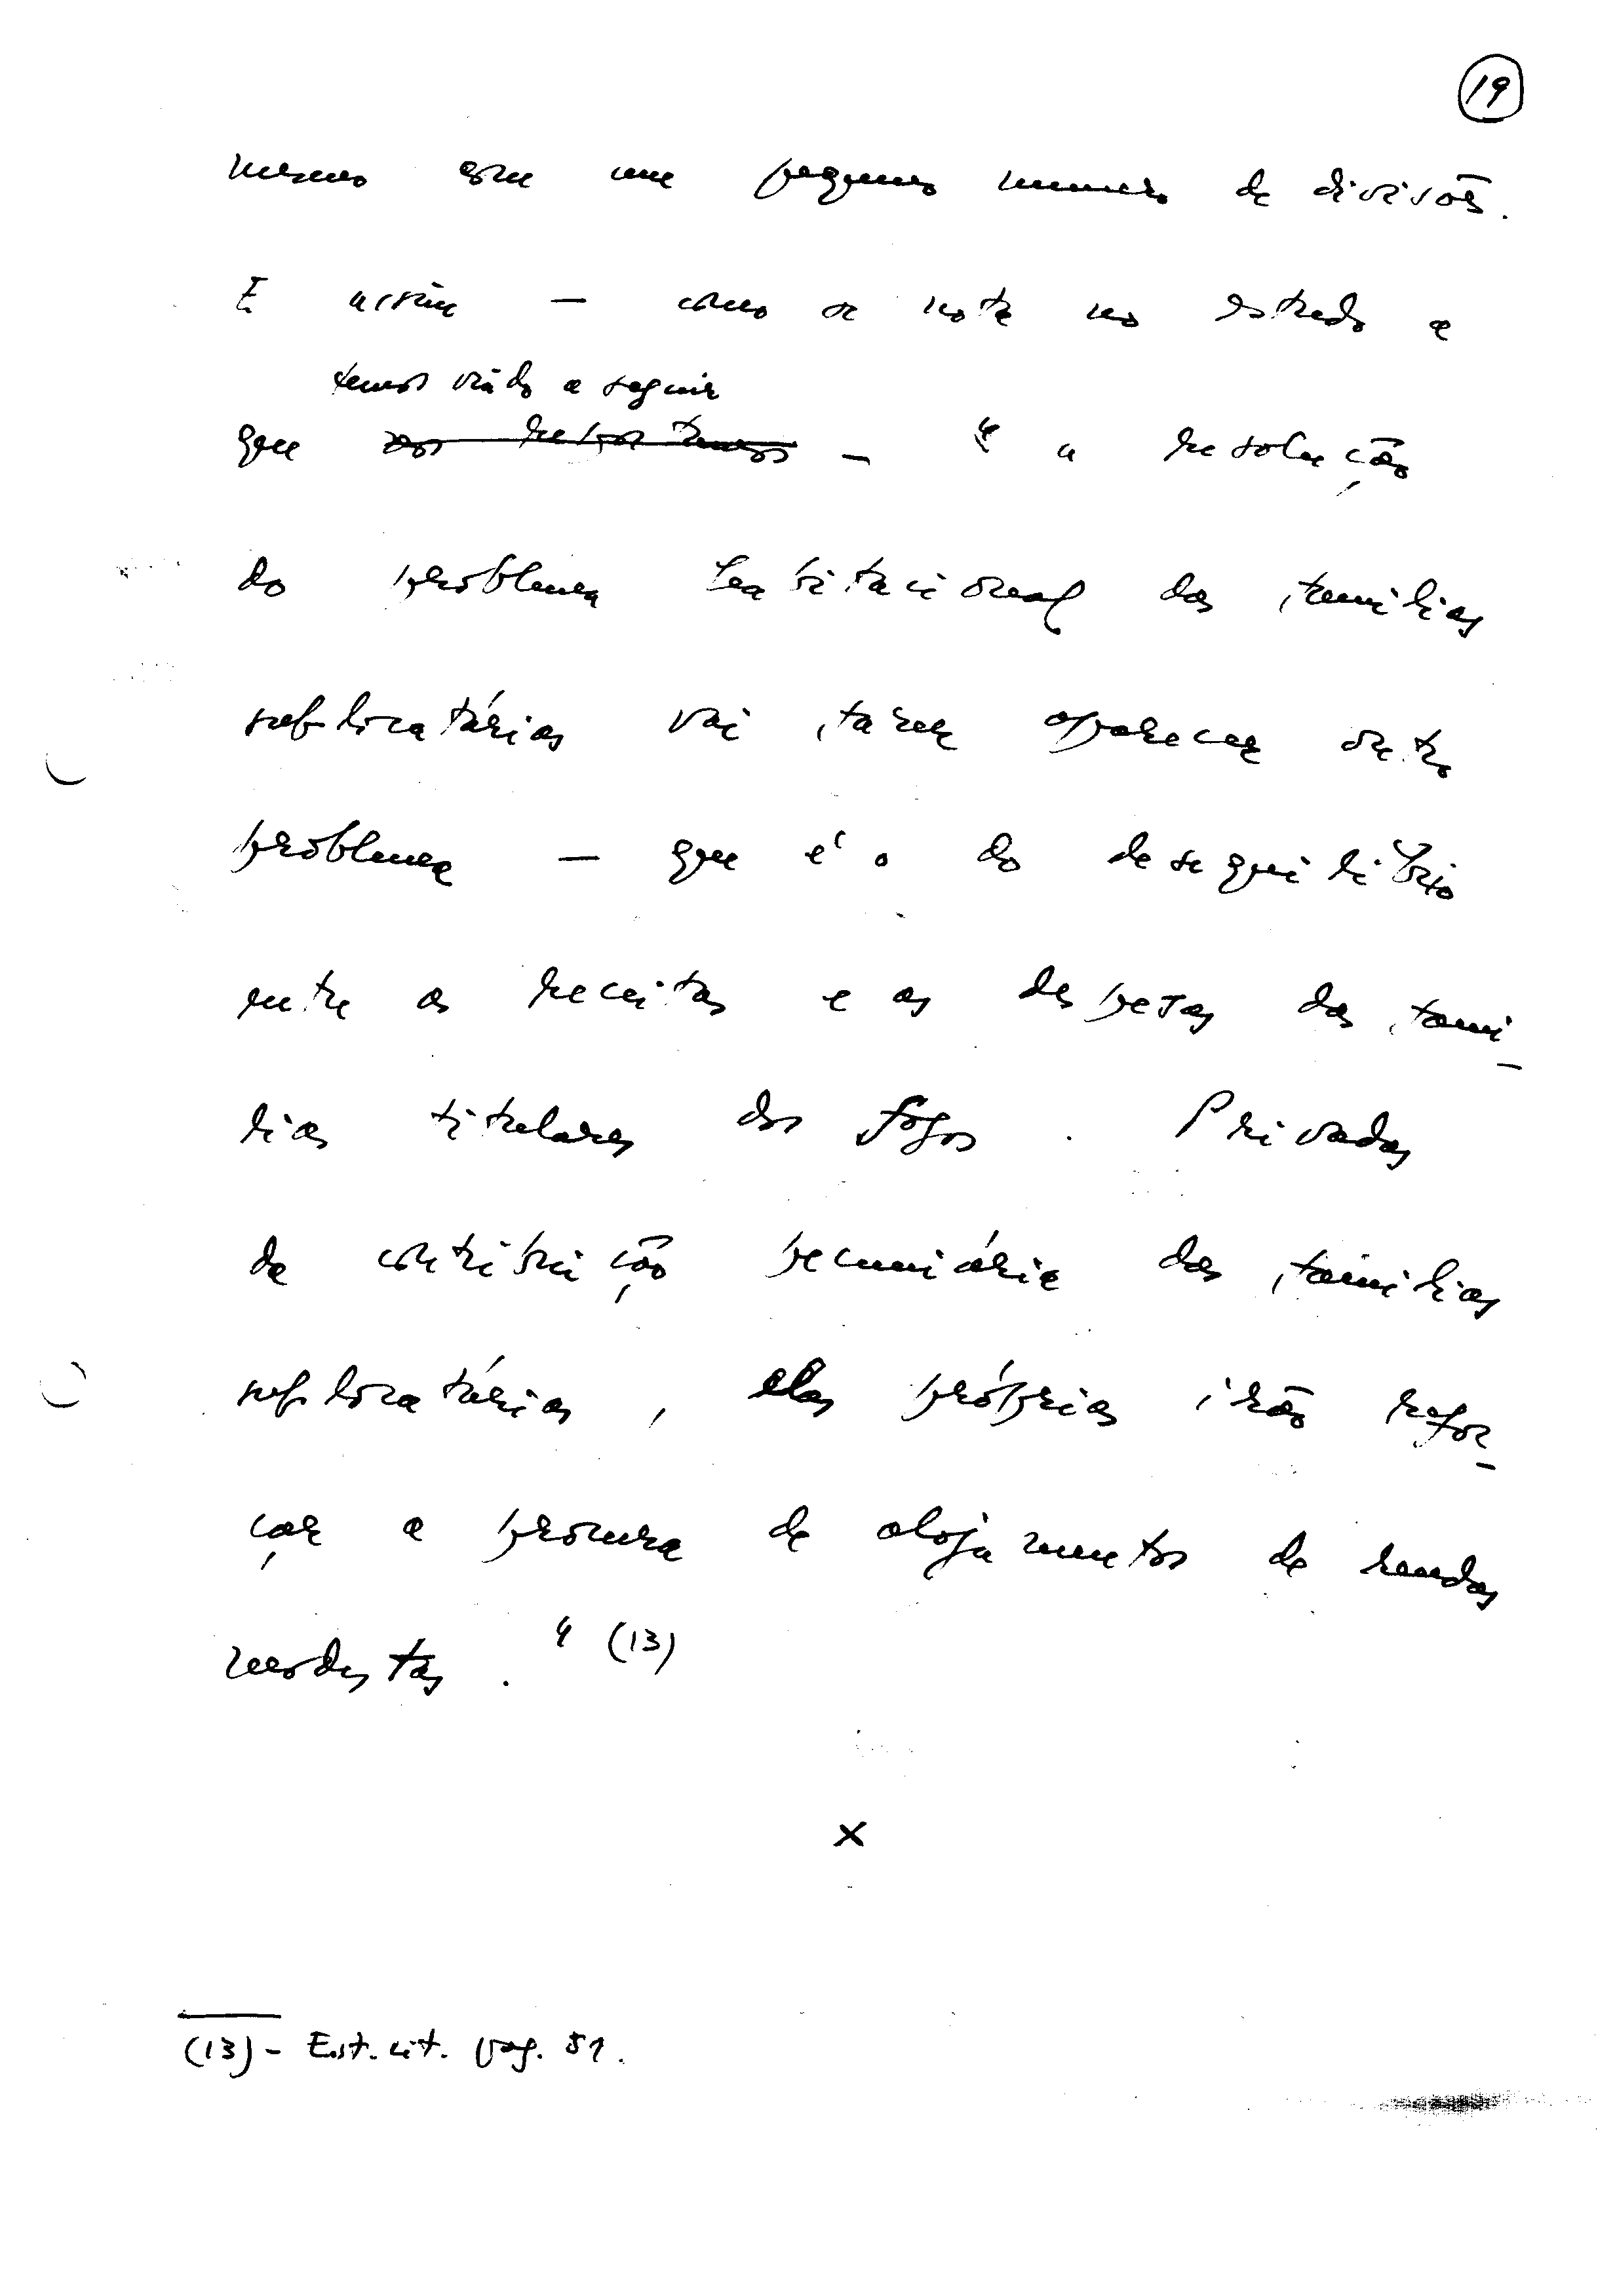 19
mesmo com um pequeno numero de divisões.
E assim — como se nota no estudo a
temos vindo a seguir
que nos reportamos — " a resolução
do problema habitacional das familias
sublocatárias vai fazer aparecer outro
problema — que é o do desequilibrio
entre as receitas e as despesas das fami-
lias titulares dos fogos . Privadas
da contribuição pecuniária das familias
sublocatárias , elas próprias irão refor-
çar a procura de alojamentos de rendas
modestas . " (13)
x
(13) - Est. cit. pag. 51.